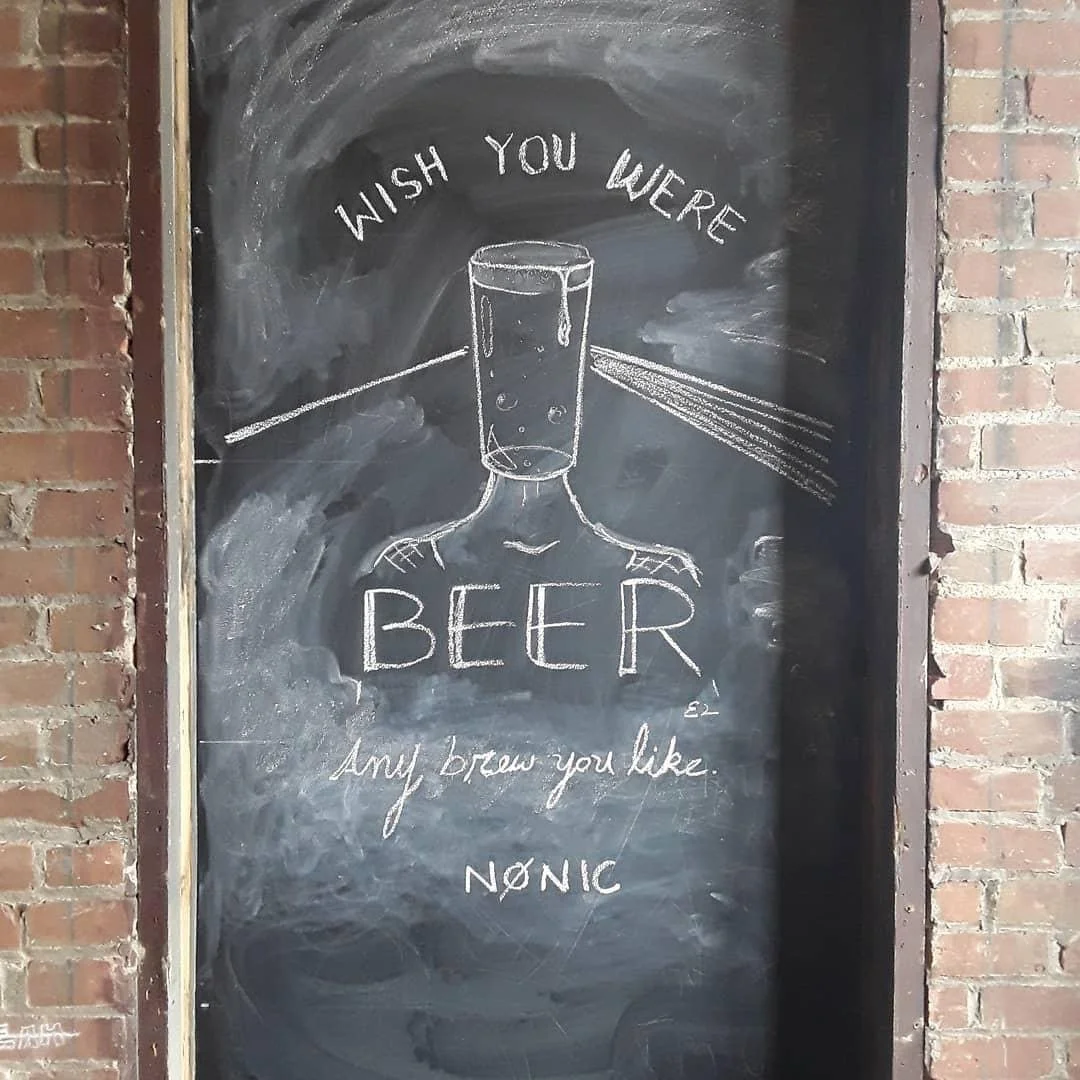 WISH YOU WERE
BEER
EL
Any brew you like.
NØNIC